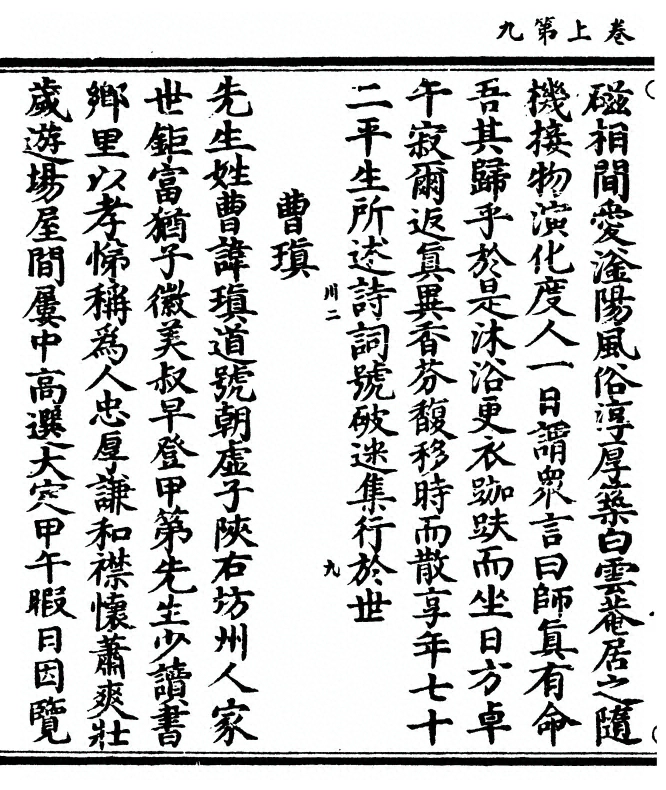 卷上第九
磁相間愛滏陽風俗淳厚築白雲菴居之隨
機接物演化度人一日謂衆言曰師眞有命
吾其歸乎於是沐浴更衣跏趺而坐日方卓
午寂爾返眞異香芬馥移時而散享年七十
二平生所述詩詞號破迷集行於世
川二
九
曹瑱
先生姓曹諱瑱道號朝虛子陝右坊州人家
世鉅富猶子徽美叔早登甲第先生少讀書
鄉里以孝悌稱爲人忠厚謙和襟懷蕭爽壯
歲遊場屋間屢中高選大定甲午暇日因覽